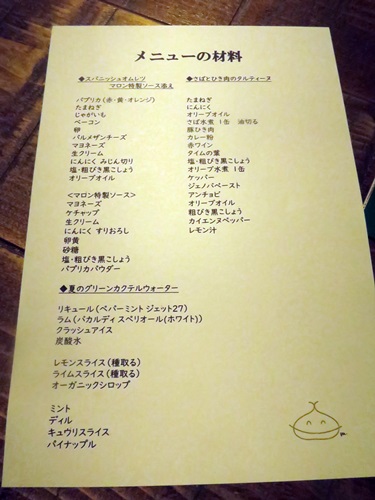 メニューの材料
◆スパニッシュオムレツ
マロン特製ソース添え
パプリカ(赤・黄・オレンジ)
たまねぎ
じゃがいも
ベーコン
卵
パルメザンチーズ
マヨネーズ
生クリーム
にんにく みじん切り
塩・粗びき黒こしょう
オリーブオイル
<マロン特製ソース>
マヨネーズ
ケチャップ
生クリーム
にんにく すりおろし
卵黄
砂糖
塩・粗びき黒こしょう
パプリカパウダー
◆さばとひき肉のタルティーヌ
たまねぎ
にんにく
オリーブオイル
さば水煮 1缶 油切る
豚ひき肉
カレー粉
赤ワイン
タイムの葉
塩・粗びき黒こしょう
オリーブ水煮 1缶
ケッパー
ジェノバペースト
アンチョビ
オリーブオイル
粗びき黒こしょう
カイエンヌペッパー
レモン汁
◆夏のグリーンカクテルウォーター
リキュール(ペパーミント ジェット27)
ラム(バカルディ スペリオール(ホワイト))
クラッシュアイス
炭酸水
レモンスライス(種取る)
ライムスライス(種取る)
オーガニックシロップ
ミント
ディル
キュウリスライス
パイナップル